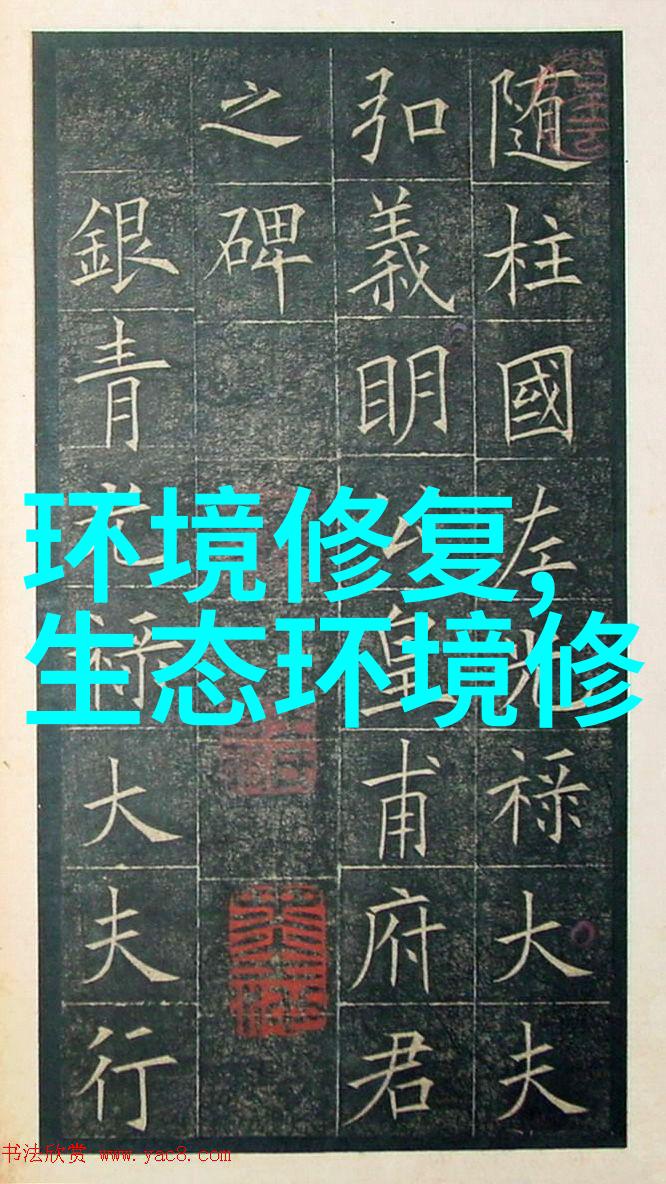 随柱國左光禄大夫
弘義明公皇甫府君
之碑
銀青光禄大夫行
环境修复,
生态环境修
书法欣赏 www.yac8.com